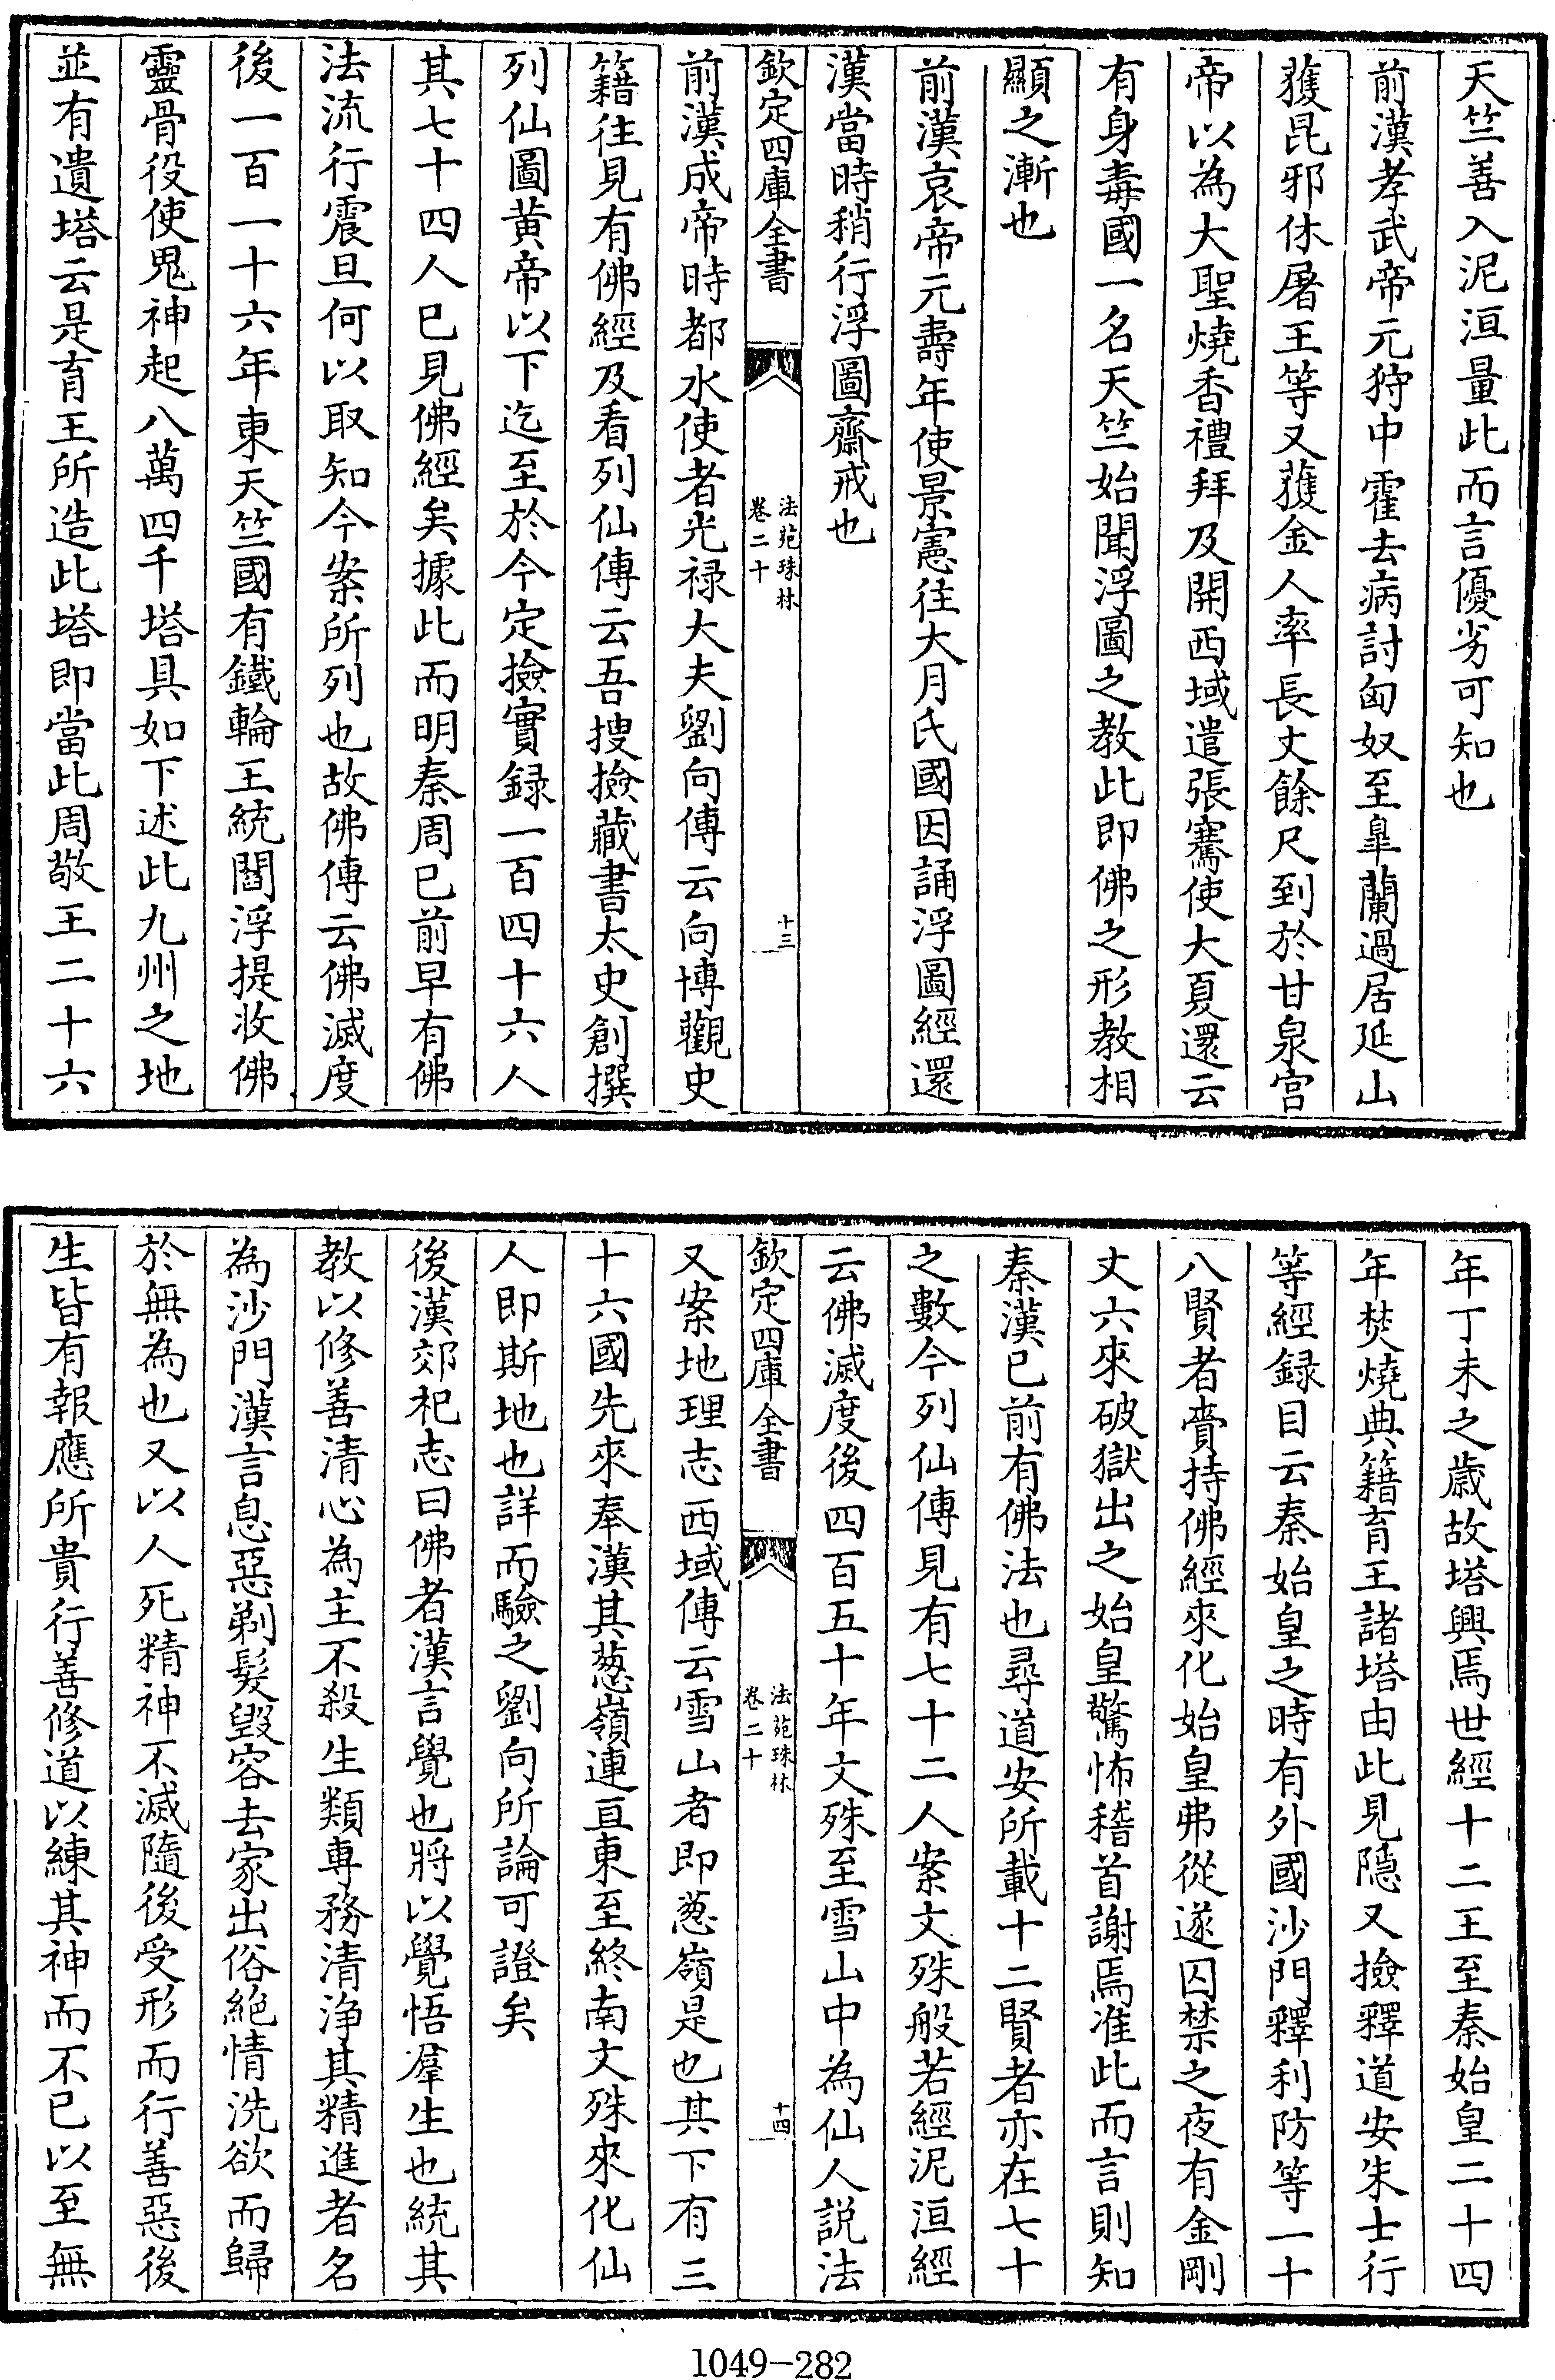 天竺善入泥洹量此而言優劣可知也
前漢孝武帝元狩中霍去病討匈奴至臯蘭過居延山
獲昆邪休屠王等又獲金人率長丈餘尺到於甘泉宮
帝以為大聖燒香禮拜及開西域遣張騫使大夏還云
有身毒國一名天竺始聞浮圖之教此即佛之形教相
顯之漸也
前漢哀帝元壽年使景憲往大月氏國因誦浮圖經還
漢當時稍行浮圖齋戒也
欽定四庫全書
法苑珠林
卷二十
十三
前漢成帝時都水使者光禄大夫劉向傳云向博觀史
籍往見有佛經及看列仙傳云吾搜撿藏書太史創撰
列仙圖黄帝以下迄至於今定撿實録一百四十六人
其七十四人已見佛經矣據此而明秦周已前早有佛
法流行震旦何以取知今案所列也故佛傳云佛滅度
後一百一十六年東天竺國有鐵輪王統閻浮提收佛
靈骨役使鬼神起八萬四千塔具如下述此九州之地
並有遺塔云是育王所造此塔即當此周敬王二十六
年丁未之歲故塔興焉世經十二王至秦始皇二十四
年焚燒典籍育王諸塔由此見隠又撿釋道安朱士行
等經録目云秦始皇之時有外國沙門釋利防等一十
八賢者賫持佛經來化始皇弗從遂囚禁之夜有金剛
丈六來破獄出之始皇驚怖稽首謝焉准此而言則知
秦漢已前有佛法也尋道安所載十二賢者亦在七十
之數今列仙傳見有七十二人案文殊般若經泥洹經
云佛滅度後四百五十年文殊至雪山中為仙人説法
欽定四庫全書
法苑珠林
卷二十
十四
又案地理志西域傳云雪山者即葱嶺是也其下有三
十六國先來奉漢其葱嶺連亘東至終南文殊來化仙
人即斯地也詳而驗之劉向所論可證矣
後漢郊祀志曰佛者漢言覺也將以覺悟羣生也統其
教以修善清心為主不殺生類専務清浄其精進者名
為沙門漢言息惡剃髮毁容去家出俗絶情洗欲而歸
於無為也又以人死精神不滅隨後受形而行善惡後
生皆有報應所貴行善修道以練其神而不已以至無
1049-282